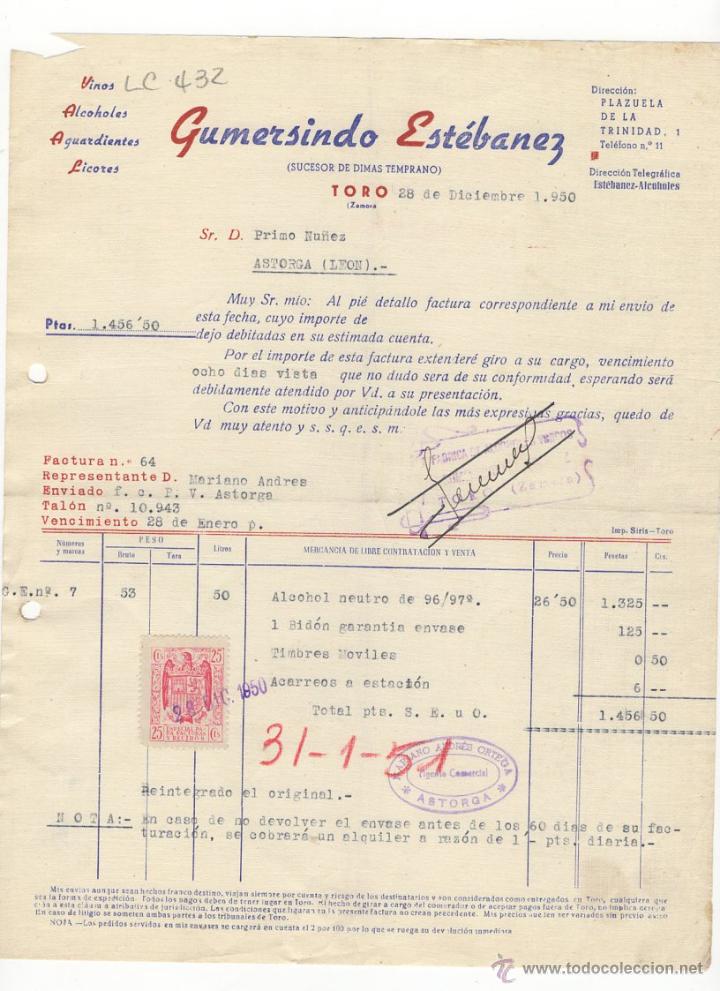 Vinos LC 432
Alcoholes
Aguardientes
Licores
Gumersindo Estébanez
(SUCESOR DE DIMAS TEMPRANO)
TORO 28 de Diciembre 1.950
(Zamora
Dirección:
PLAZUELA
DE LA
TRINIDAD, 1
Teléfono n.º 11
Dirección Telegráfica
Estébanez-Alcoholes
Sr. D. Primo Nuñez
ASTORGA (LEON).-
Muy Sr. mío: Al pié detallo factura correspondiente a mi envio de
esta fecha, cuyo importe de
Ptas. 1.456'50
dejo debitadas en su estimada cuenta.
Por el importe de esta factura extenderé giro a su cargo, vencimiento
ocho dias vista que no dudo sera de su conformidad, esperando será
debidamente atendido por Vd. a su presentación.
Con este motivo y anticipándole las más expresivas gracias, quedo de
Vd muy atento y s. s. q. e. s. m.
FABRICA DE
(Zamora)
Factura n.º 64
Representante D. Mariano Andres
Enviado f. c. P. V. Astorga
Talón nº. 10.943
Vencimiento 28 de Enero p.
Imp. Siris-Toro
Números y marcas PESO Bruto Tara Litros MERCANCIA DE LIBRE CONTRATACION Y VENTA Precio Pesetas Cts.
G.E.nº. 7 53 50 Alcohol neutro de 96/97º. 26'50 1.325 --
1 Bidón garantia envase 125 --
Timbres Moviles 0 50
Acarreos a estación 6 --
Total pts. S. E. u O. 1.456 50
Cts 25 25
28 DIC. 1950
ESPECIAL PA-
RA FACTURAS
Y RECIBOS
25 Cts
31-1-51
MARIANO ANDRÉS ORTEGA
Agente Comercial
* ASTORGA *
Reintegrado el original.-
NOTA:- En caso de no devolver el envase antes de los 60 dias de su fac-
turación, se cobrará un alquiler a razón de 1'- pts. diaria.-
Mis envios aunque sean hechos franco destino, viajan siempre por cuenta y riesgo de los destinatarios y son considerados como entregados en Toro, cualquiera que
sea la forma de expedición. Todos los pagos deben de tener lugar en Toro. El hecho de girar a cargo del comprador o de aceptar pagos fuera de Toro, no implica deroga-
ción a esta cláusula atributiva de jurisdicción. Las condiciones que figuran en la presente factura no crean precedente. Mis precios que ten ser variados sin previo aviso
En caso de litigio se someten ambas partes a los tribunales de Toro.
NOTA.—Los pedidos servidos en mis envases se cargará en cuenta el 2 por 100 por lo que se ruega su devolución inmediata
www.todocoleccion.net